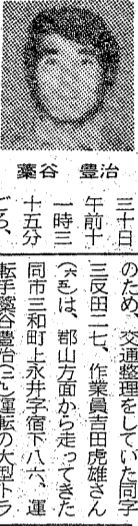 藁谷　豊治
三十日
午前十
一時三
十五分
ごろ、
のため、交通整理をしていた同字
三反田二七、作業員吉田虎雄さん
（六五）は、郡山方面から走ってきた
同市三和町上永井字宿下八六、運
転手藁谷豊治（二）運転の大型トラ